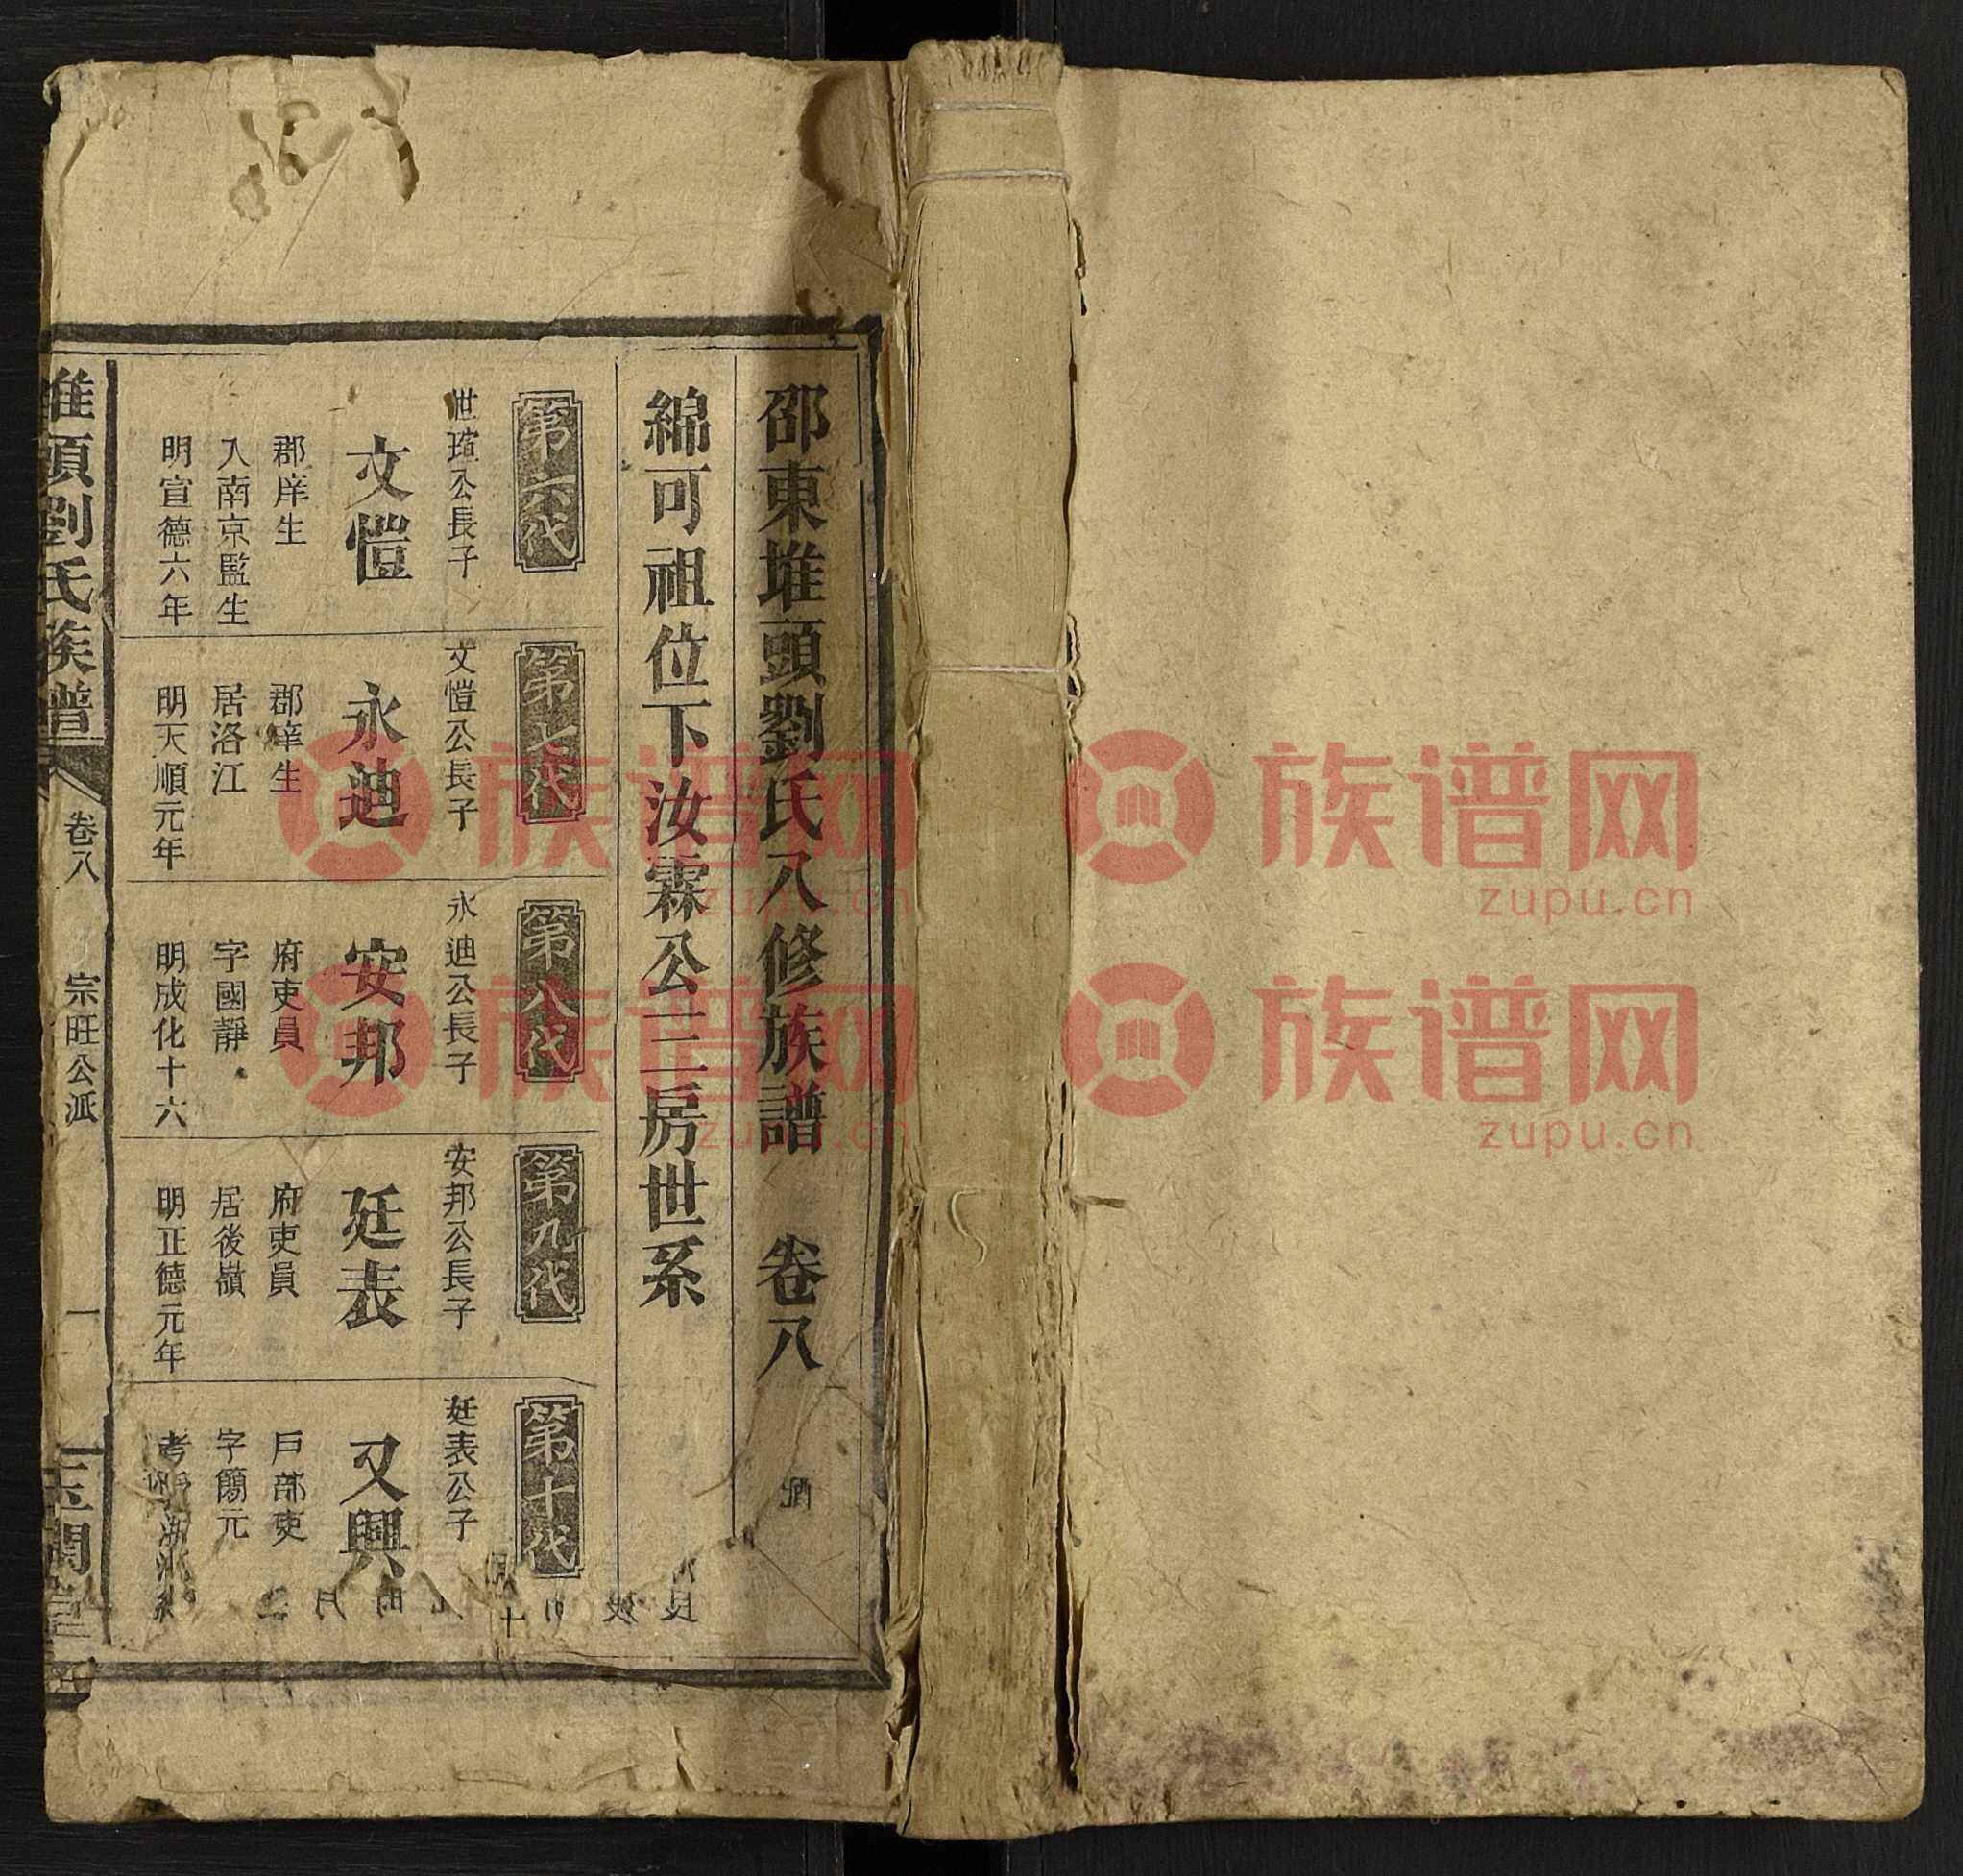 邵東堆頭劉氏八修族譜 卷八
綿可祖位下汝霖公三房世系
第六代
世瑄公長子
文愷
郡庠生
入南京監生
明宣德六年
第七代
文愷公長子
永迪
郡庠生
居洛江
明天順元年
第八代
永迪公長子
安邦
府吏員
字國靜
明成化十六
第九代
安邦公長子
廷表
府吏員
居後嶺
明正德元年
第十代
廷表公子
又興
戶部吏
字簡元
堆頭劉氏族譜
卷八
宗旺公派
一
族谱网
zupu.cn
族谱网
zupu.cn
族谱网
zupu.cn
族谱网
zupu.cn